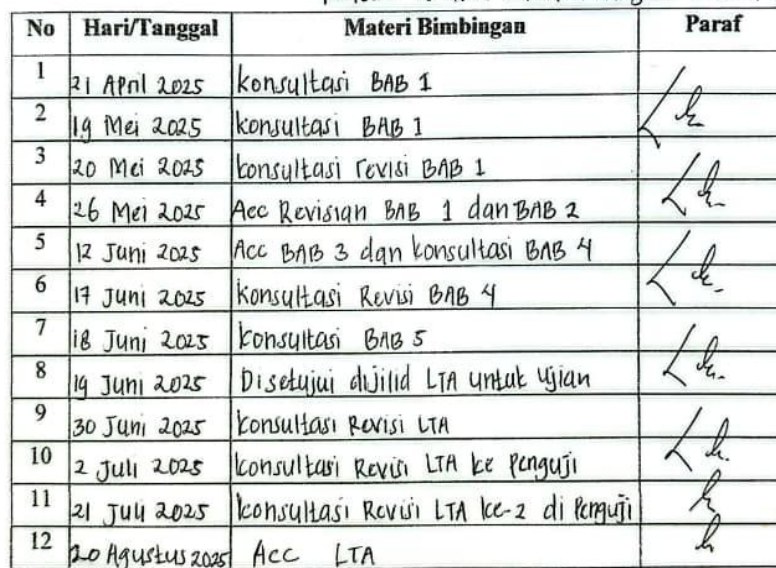 No Hari/Tanggal Materi Bimbingan Paraf
1 21 April 2025 konsultasi BAB 1
2 19 Mei 2025 konsultasi BAB 1
3 20 Mei 2025 konsultasi revisi BAB 1
4 26 Mei 2025 Acc Revisian BAB 1 dan BAB 2
5 12 Juni 2025 Acc BAB 3 dan konsultasi BAB 4
6 17 Juni 2025 konsultasi Revisi BAB 4
7 18 Juni 2025 konsultasi BAB 5
8 19 Juni 2025 Disetujui dijilid LTA untuk Ujian
9 30 Juni 2025 konsultasi Revisi LTA
10 2 Juli 2025 konsultasi Revisi LTA ke Penguji
11 21 Juli 2025 konsultasi Revisi LTA ke-2 di Penguji
12 20 Agustus 2025 Acc LTA